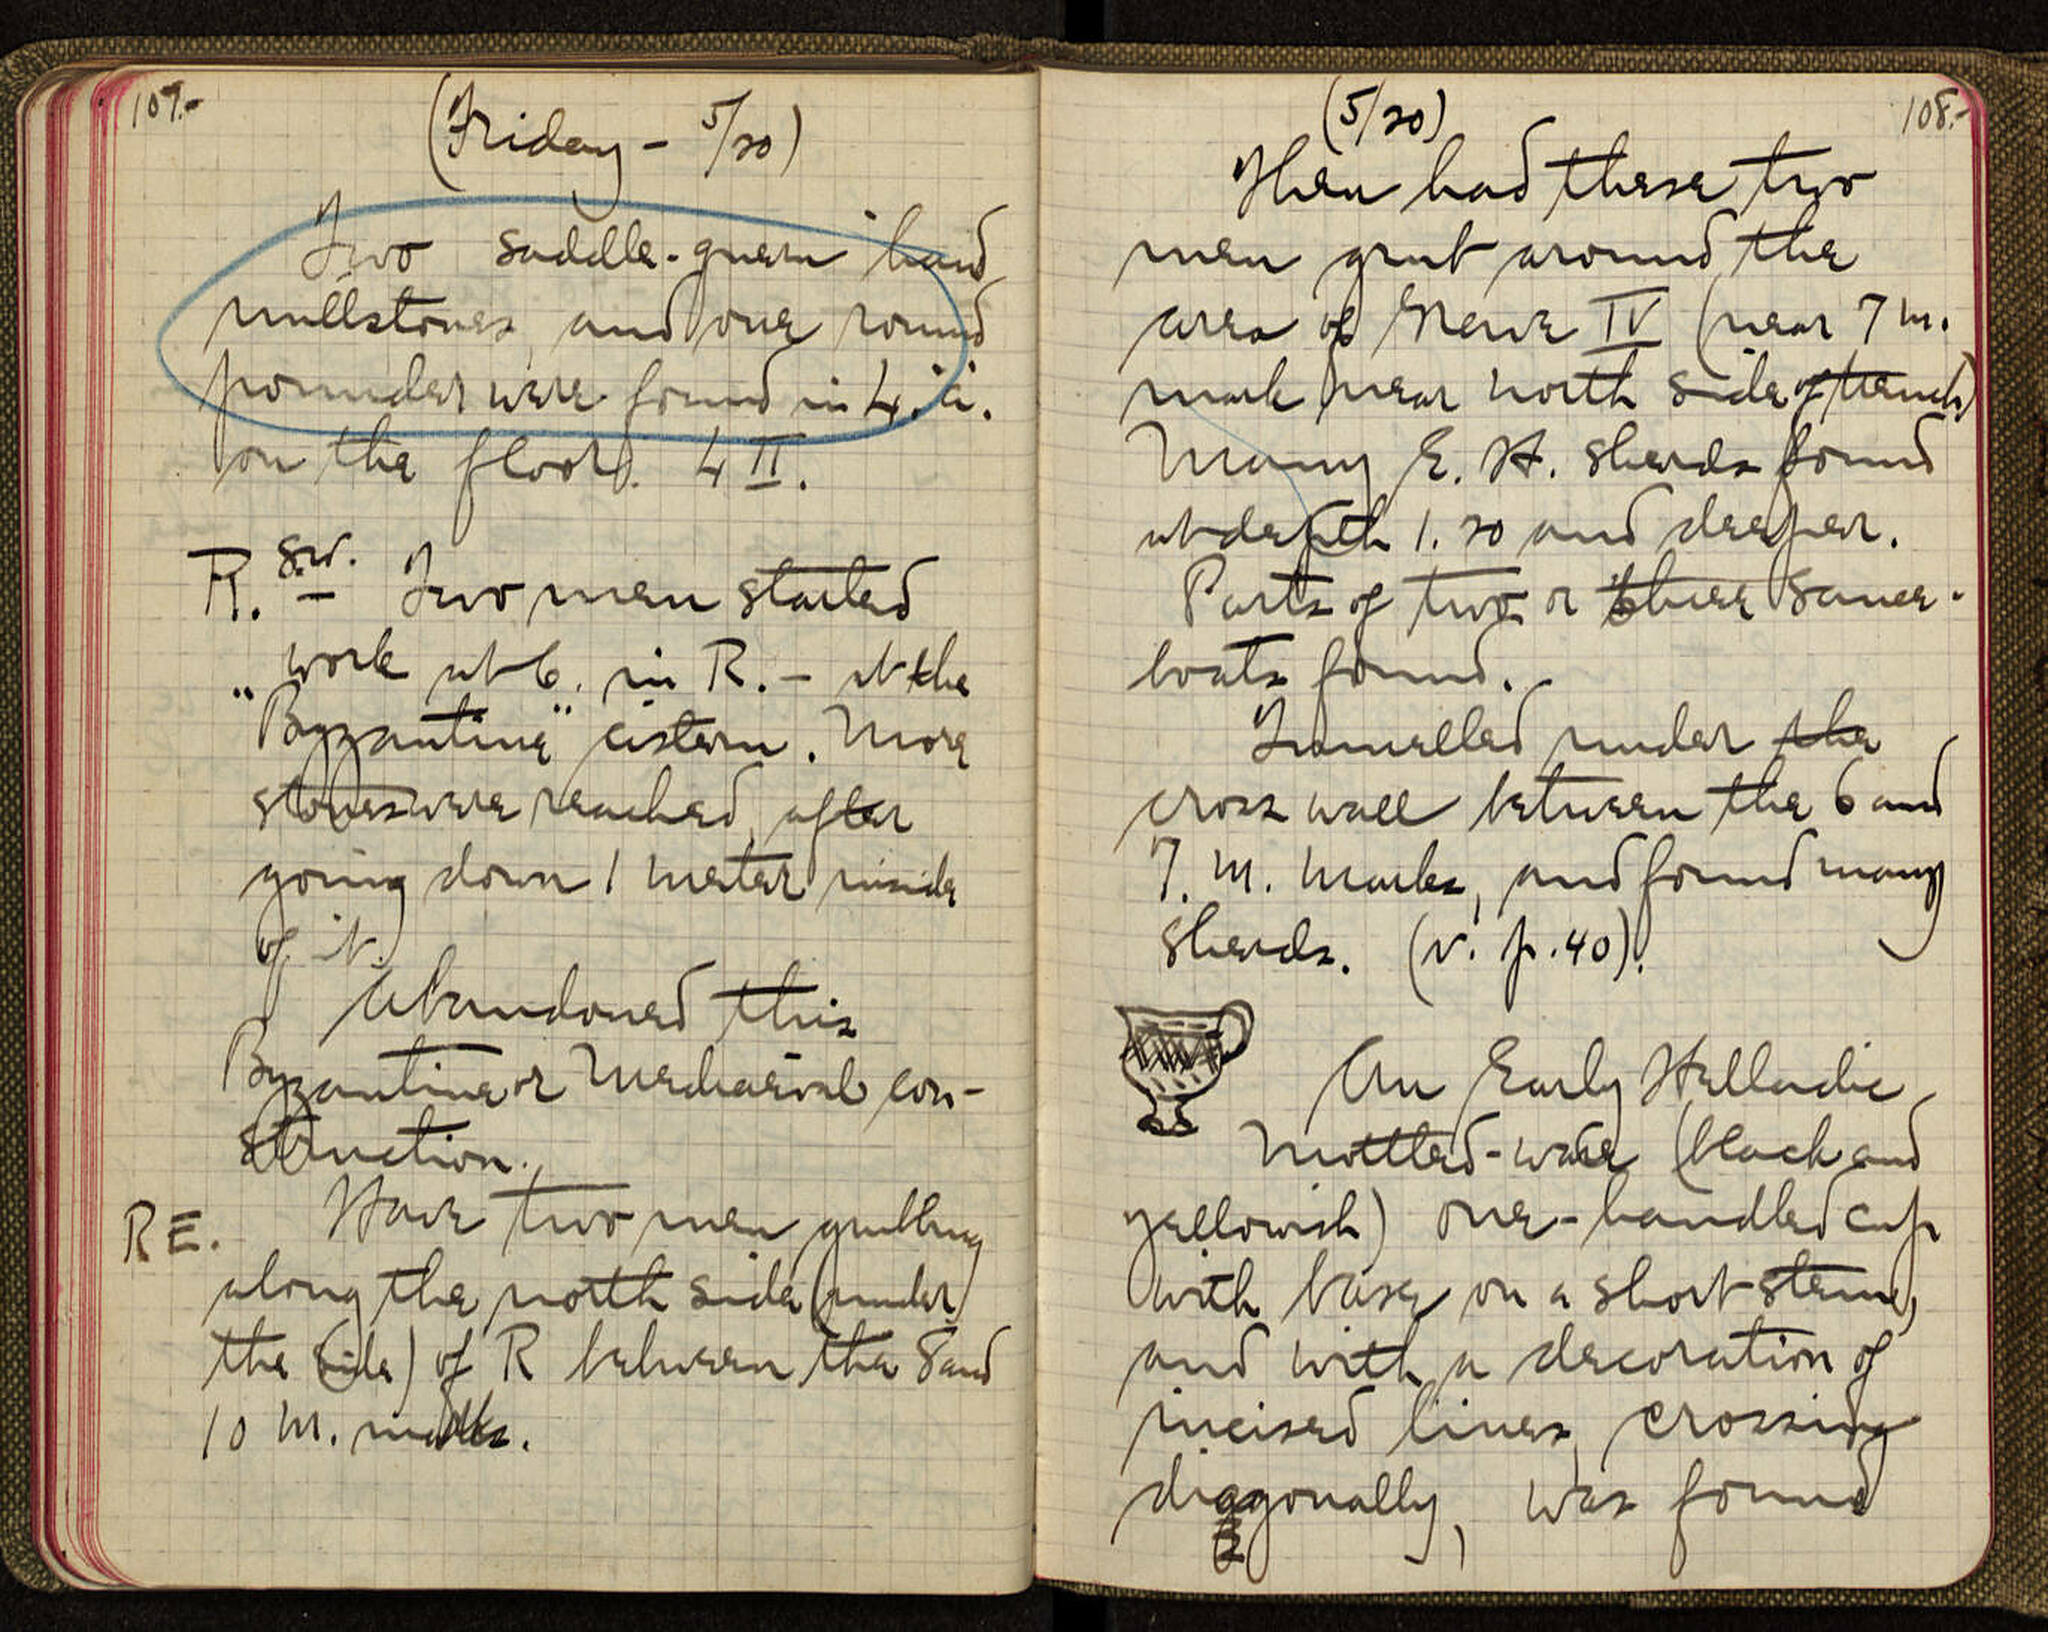 107.-
(Friday - 5/20)
Two saddle-quern hand
millstones, and one round
pounder were found in 4. ii.
on the floor. 4 II.
R. S.W. - Two men started
work at 6. in R. - at the
"Byzantine" cistern. More
stones were reached, after
going down 1 meter inside
of it.
Abandoned this
Byzantine or Mediaeval con-
struction.
RE. Have two men grubbing
along the north side (under
the side) of R between the 8 and
10 m. marks.
108.-
(5/20)
Then had these two
men grub around the
area of Grave IV (near 7 m.
mark near north side of trench)
Many E. H. sherds found
at depth 1.20 and deeper.
Parts of two or three sauce-
boats found.
Tunnelled under the
cross wall between the 6 and
7. m. marks, and found many
sherds. (v. p. 40).
An Early Helladic
Mottled-ware (black and
yellowish) one-handled cup
with base on a short stem,
and with a decoration of
incised lines, crossing
diagonally, was found